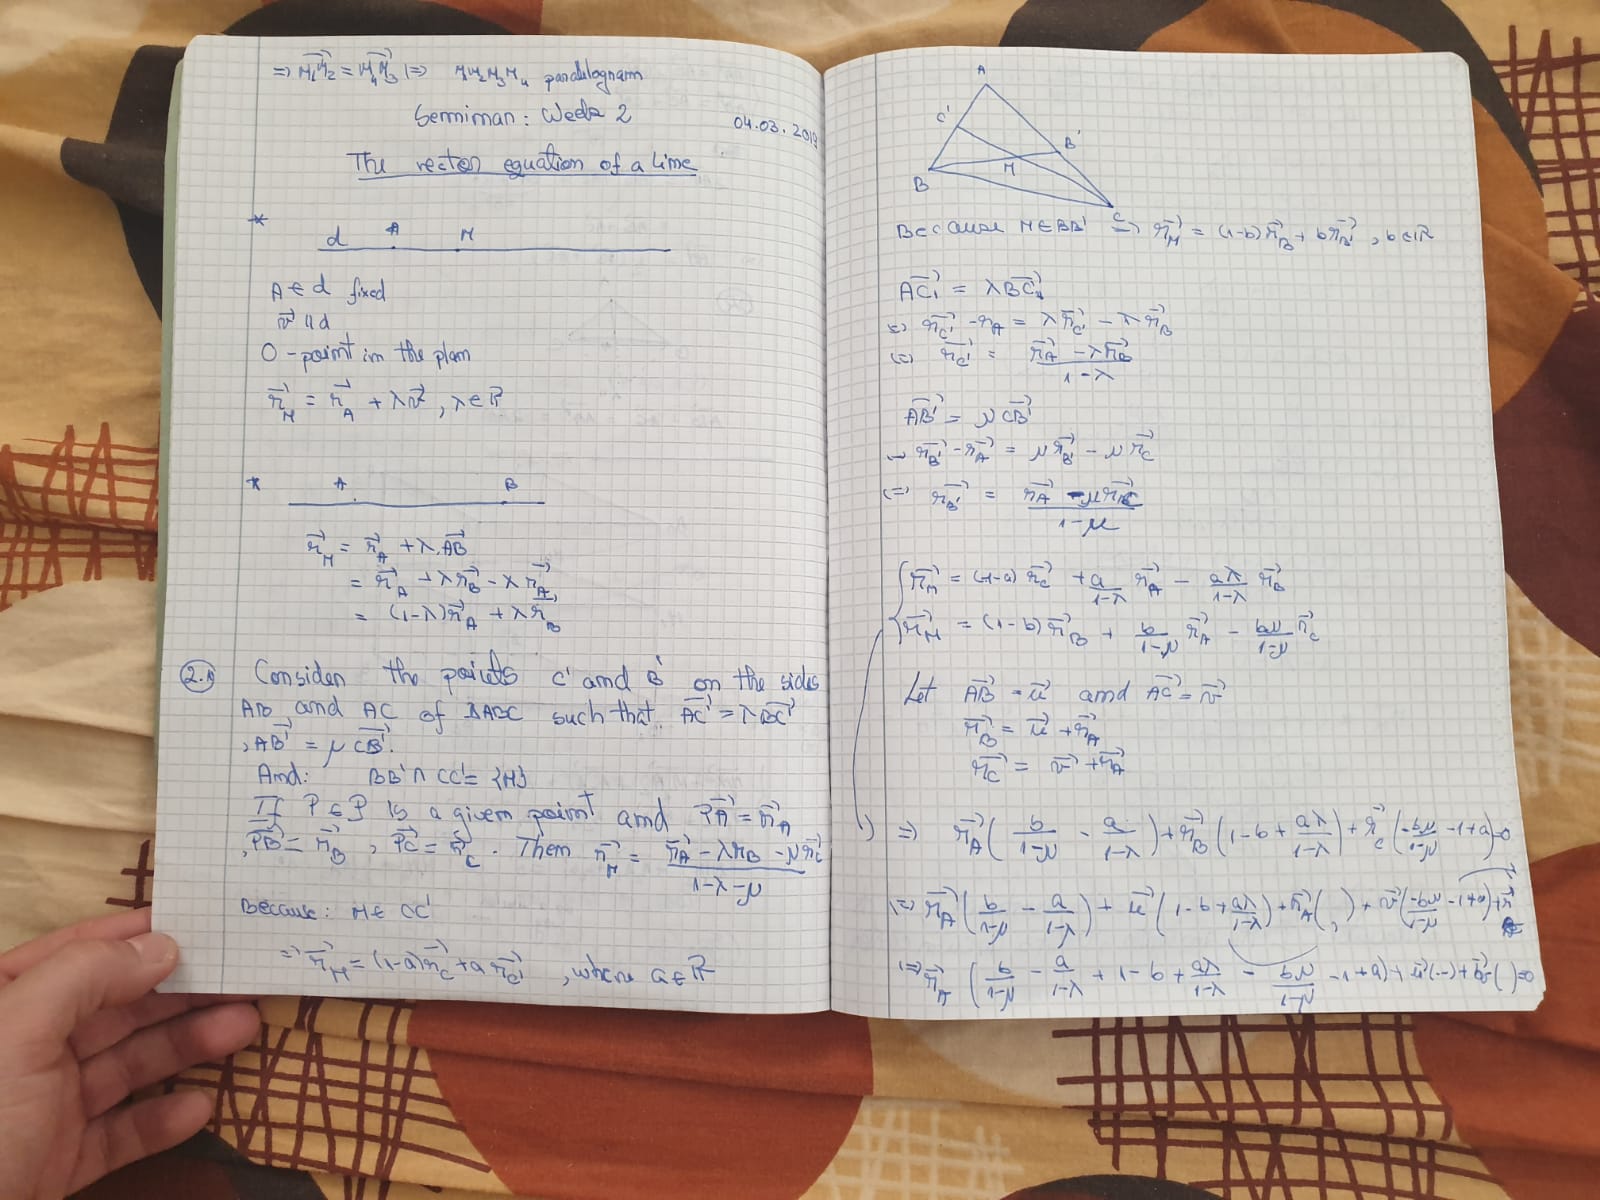 => M₁M₂⃗ = M₄M₃⃗ |=> M₁M₂M₃M₄ parallelogram
Seminar: Week 2
04.03.2019
The vector equation of a line
* d A M
A ∈ d fixed
v⃗ || d
O - point in the plan
r⃗_M = r⃗_A + λv⃗, λ∈ℝ
* A B
r⃗_M = r⃗_A + λ.AB⃗
= r⃗_A + λr⃗_B - λr⃗_A
= (1-λ)r⃗_A + λr⃗_B
Consider the points C' and B' on the sides
AB and AC of ΔABC such that AC'⃗ = λBC'⃗
, AB'⃗ = μCB'⃗.
And: BB'∩CC' = {M}
If P∈P is a given point and PA⃗ = r⃗_A
, PB⃗ = r⃗_B, PC⃗ = r⃗_C. Then r⃗_M = (r⃗_A - λr_B - μr⃗_C)/(1-λ-μ)
Because: M∈CC'
=> r⃗_M = (1-a)r⃗_C + a r⃗_C', where a∈ℝ
A
C'
B'
M
B
C
Because M∈BB' => r⃗_M = (1-b)r⃗_B + b r⃗_B', b∈ℝ
AC'⃗ = λBC'⃗
<=> r⃗_C' - r_A = λr⃗_C' - λr⃗_B
<=> r⃗_C' = (r⃗_A - λr⃗_B)/(1-λ)
AB'⃗ = μCB'⃗
=> r⃗_B' - r⃗_A = μr⃗_B' - μr⃗_C
<=> r⃗_B' = (r⃗_A - μr⃗_C)/(1-μ)
{ r⃗_M = (1-a)r⃗_C + a/(1-λ) r⃗_A - aλ/(1-λ) r⃗_B
r⃗_M = (1-b)r⃗_B + b/(1-μ) r⃗_A - bμ/(1-μ) r⃗_C
Let AB⃗ = u⃗ and AC⃗ = v⃗
r⃗_B = u⃗ + r⃗_A
r⃗_C = v⃗ + r⃗_A
=> r⃗_A (b/(1-μ) - a/(1-λ)) + r⃗_B (1-b + aλ/(1-λ)) + r⃗_C (-bμ/(1-μ) -1+a) = 0
<=> r⃗_A (b/(1-μ) - a/(1-λ)) + u⃗ (1-b + aλ/(1-λ)) + r⃗_A ( ) + v⃗ (-bμ/(1-μ) -1+a) + r⃗
<=> r⃗_A (b/(1-μ) - a/(1-λ) + 1-b + aλ/(1-λ) - bμ/(1-μ) -1+a) + u⃗(--) + v⃗( ) = 0